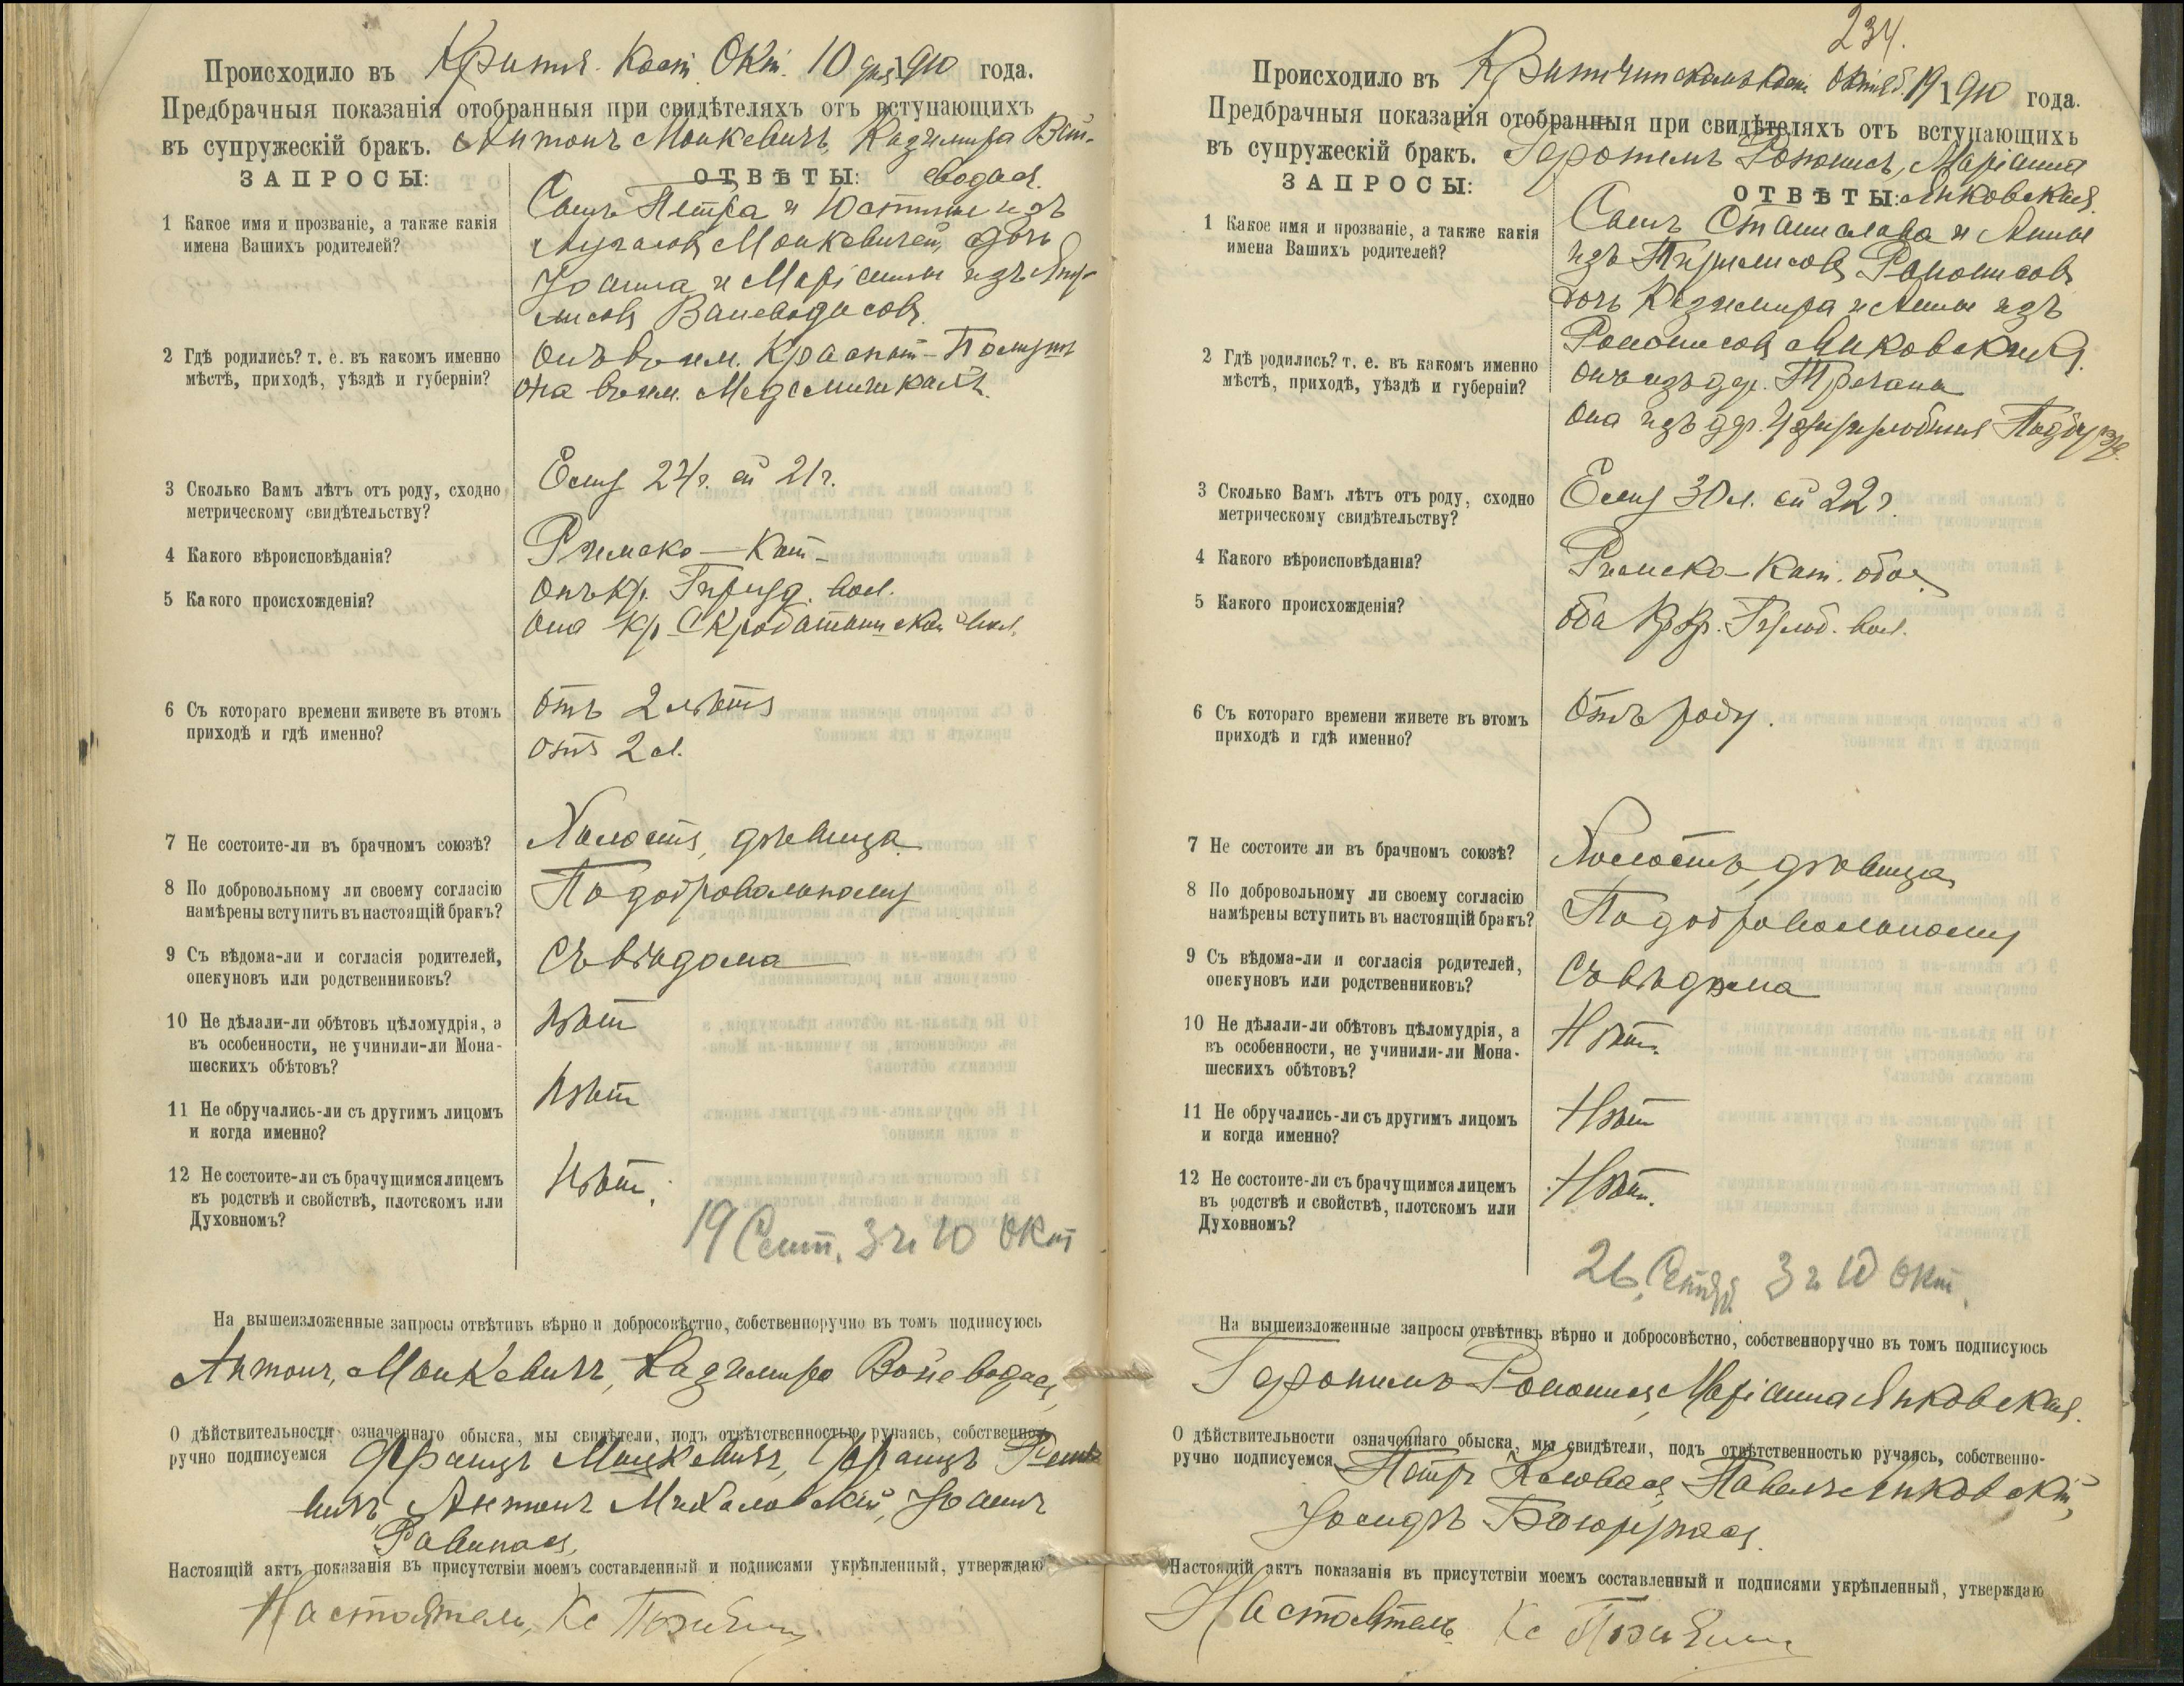 Происходило въ Окт. 10 дня 1910 года.
Предбрачныя показанія отобранныя при свидѣтеляхъ отъ вступающихъ
въ супружескій бракъ. Антонъ Монкевичъ, Казимира
ЗАПРОСЫ: ОТВѢТЫ:
1 Какое имя и прозваніе, а также какія
имена Вашихъ родителей?
Сынъ Петра и Юстины изъ
Монкевичей, дочь
Іоанна и Маріанны изъ
2 Гдѣ родились? т. е. въ какомъ именно
мѣстѣ, приходѣ, уѣздѣ и губерніи?
Онъ въ им.
Она въ им.
3 Сколько Вамъ лѣтъ отъ роду, сходно
метрическому свидѣтельству?
Ему 24 г. ей 21 г.
4 Какого вѣроисповѣданія?
Римско-Кат.
5 Какого происхожденія?
Онъ кр. вол.
Она кр. вол.
6 Съ котораго времени живете въ этомъ
приходѣ и гдѣ именно?
Отъ 2 лѣтъ
Отъ 2 л.
7 Не состоите-ли въ брачномъ союзѣ?
Холостъ, дѣвица
8 По добровольному ли своему согласію
намѣрены вступить въ настоящій бракъ?
По добровольному
9 Съ вѣдома-ли и согласія родителей,
опекуновъ или родственниковъ?
Съ вѣдома
10 Не дѣлали-ли обѣтовъ цѣломудрія, а
въ особенности, не учинили-ли Мона-
шескихъ обѣтовъ?
Нѣтъ
11 Не обручались-ли съ другимъ лицомъ
и когда именно?
Нѣтъ
12 Не состоите-ли съ брачущимся лицемъ
въ родствѣ и свойствѣ, плотскомъ или
Духовномъ?
Нѣтъ.
19 Сент. 3 и 10 Окт
На вышеизложенные запросы отвѣтивъ вѣрно и добросовѣстно, собственноручно въ томъ подписуюсь
Антонъ Монкевичъ, Казимира
О дѣйствительности означеннаго обыска, мы свидѣтели, подъ отвѣтственностью ручаясь, собственно-
ручно подписуемся Францъ Францъ
Антонъ Михаловскій, Іоаннъ
Настоящій актъ показанія въ присутствіи моемъ составленный и подписями укрѣпленный, утверждаю
Настоятель, Кс
234.
Происходило въ 19 1910 года.
Предбрачныя показанія отобранныя при свидѣтеляхъ отъ вступающихъ
въ супружескій бракъ. Геронимъ Маріанна
ЗАПРОСЫ: ОТВѢТЫ: Янковская
1 Какое имя и прозваніе, а также какія
имена Вашихъ родителей?
Сынъ Станислава и Анны
изъ
дочь Казимира и Анны изъ
Янковскихъ
2 Гдѣ родились? т. е. въ какомъ именно
мѣстѣ, приходѣ, уѣздѣ и губерніи?
Онъ изъ дер.
Она изъ дер.
3 Сколько Вамъ лѣтъ отъ роду, сходно
метрическому свидѣтельству?
Ему 30 л. ей 22 г.
4 Какого вѣроисповѣданія?
Римско-Кат. обое
5 Какого происхожденія?
Оба кр. вол.
6 Съ котораго времени живете въ этомъ
приходѣ и гдѣ именно?
Отъ роду.
7 Не состоите ли въ брачномъ союзѣ?
Холостъ, дѣвица
8 По добровольному ли своему согласію
намѣрены вступить въ настоящій бракъ?
По добровольному
9 Съ вѣдома-ли и согласія родителей,
опекуновъ или родственниковъ?
Съ вѣдома
10 Не дѣлали-ли обѣтовъ цѣломудрія, а
въ особенности, не учинили-ли Мона-
шескихъ обѣтовъ?
Нѣтъ.
11 Не обручались-ли съ другимъ лицомъ
и когда именно?
Нѣтъ
12 Не состоите-ли съ брачущимся лицемъ
въ родствѣ и свойствѣ, плотскомъ или
Духовномъ?
Нѣтъ.
26 3 и 10 Окт.
На вышеизложенные запросы отвѣтивъ вѣрно и добросовѣстно, собственноручно въ томъ подписуюсь
Геронимъ Маріанна Янковская.
О дѣйствительности означеннаго обыска, мы свидѣтели, подъ отвѣтственностью ручаясь, собственно-
ручно подписуемся Петръ Павелъ Янковскій,
Іосифъ
Настоящій актъ показанія въ присутствіи моемъ составленный и подписями укрѣпленный, утверждаю
Настоятель Кс